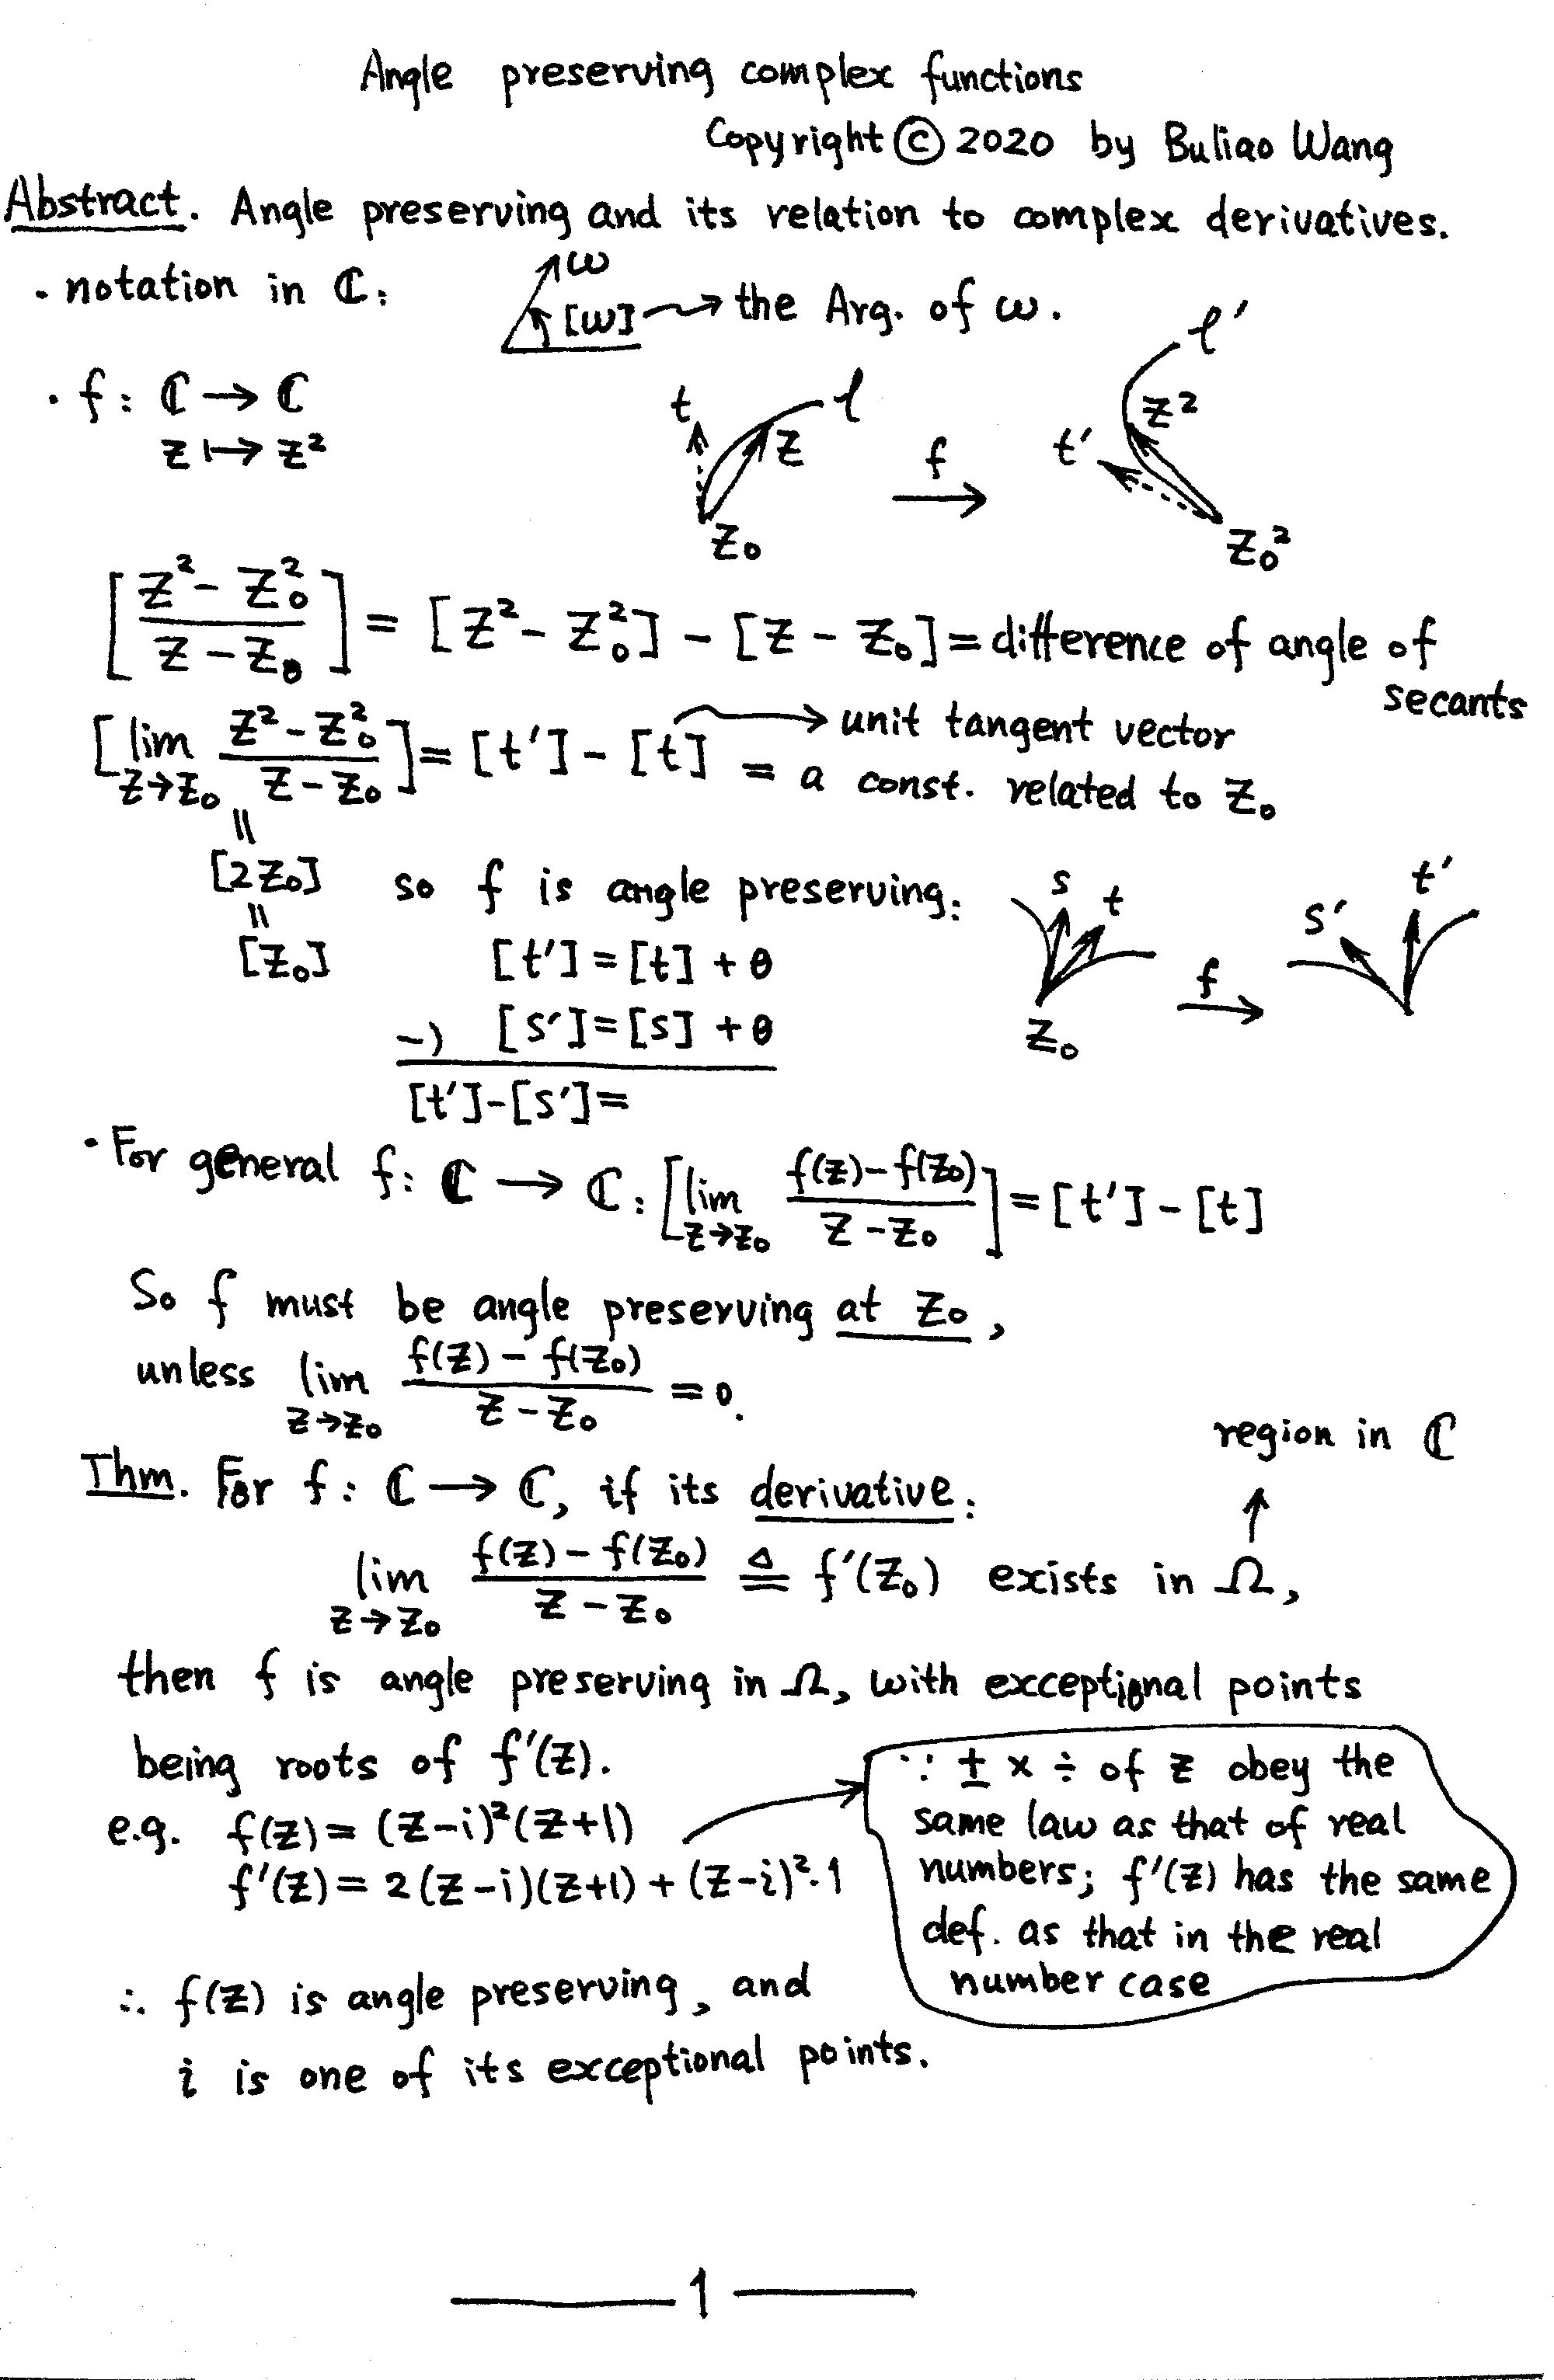 Angle preserving complex functions
Copyright © 2020 by Buliao Wang
Abstract. Angle preserving and its relation to complex derivatives.
· notation in ℂ: ω [ω] → the Arg. of ω.
· f: ℂ → ℂ
z ↦ z²
t z l z₀ f t' z² l' z₀²
[(z² - z₀²)/(z - z₀)] = [z² - z₀²] - [z - z₀] = difference of angle of
secants
[lim z→z₀ (z² - z₀²)/(z - z₀)] = [t'] - [t] → unit tangent vector
= a const. related to z₀
||
[2z₀] so f is angle preserving:
||
[z₀] [t'] = [t] + θ
-) [s'] = [s] + θ
[t']-[s']=
s t z₀ f s' t'
· For general f: ℂ → ℂ: [lim z→z₀ (f(z)-f(z₀))/(z - z₀)] = [t'] - [t]
So f must be angle preserving at z₀,
unless lim z→z₀ (f(z) - f(z₀))/(z - z₀) = 0.
region in ℂ
↑
Thm. For f: ℂ → ℂ, if its derivative:
lim z→z₀ (f(z) - f(z₀))/(z - z₀) ≜ f'(z₀) exists in Ω,
then f is angle preserving in Ω, with exceptional points
being roots of f'(z).
e.g. f(z) = (z-i)²(z+1)
f'(z) = 2(z-i)(z+1) + (z-i)²·1
∵ ± × ÷ of z obey the
same law as that of real
numbers; f'(z) has the same
def. as that in the real
number case
∴ f(z) is angle preserving, and
i is one of its exceptional points.
1